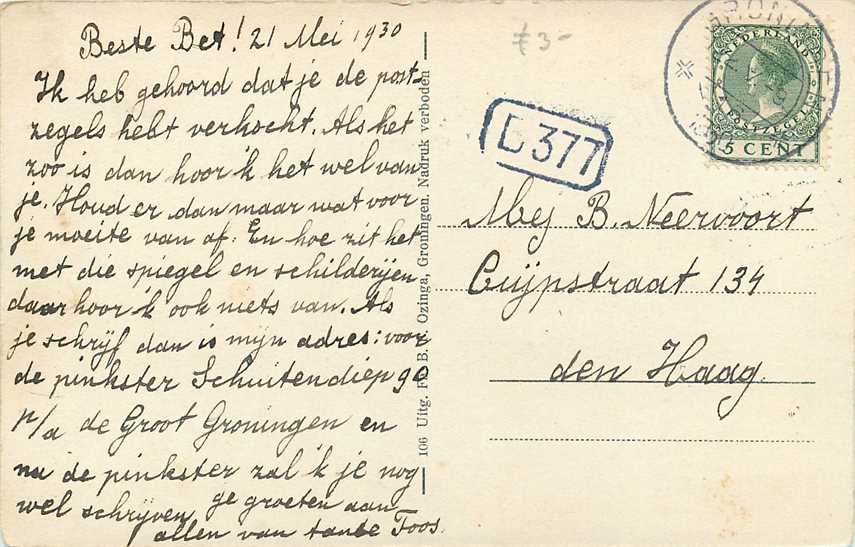 Beste Bet! 21 Mei 1930
Ik heb gehoord dat je de post-
zegels hebt verkocht. Als het
zoo is dan hoor 'k het wel van
je. Houd er dan maar wat voor
je moeite van af. En hoe zit het
met die spiegel en schilderijen
daar hoor 'k ook niets van. Als
je schrijf dan is mijn adres: voor
de pinkster Schuitendiep 90
p/a de Groot Groningen en
na de pinkster zal 'k je nog
wel schrijven ge groeten aan
allen van tante Toos.
106 Uitg. Ozinga, Groningen. Nadruk verboden
£ 3-
D 377
NEDERLAND
POSTZEGEL
5 CENT
Mej B. Neervoort
Cuijpstraat 134
den Haag.